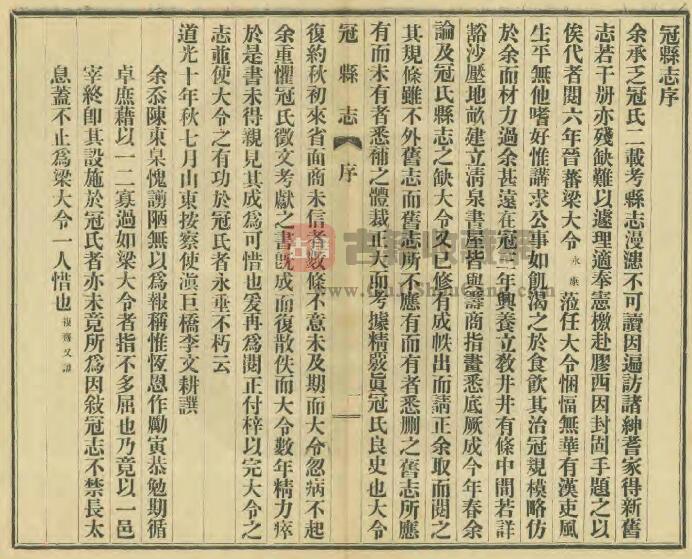 冠縣志序
余承乏冠氏二載考縣志漫漶不可讀因遍訪諸紳耆家得新舊
志若干册亦殘缺難以遽理適奉憲檄赴膠西因封固手題之以
俟代者閱六年晉蕃梁大令永康蒞任大令悃愊無華有漢吏風
生平無他嗜好惟講求公事如飢渴之於食飲其治冠規模略仿
於余而材力過余甚遠在冠三年興養立教井井有條中間若詳
豁沙壓地畝建立清泉書屋皆與籌商指畫悉底厥成今年春余
論及冠氏縣志之缺大令又已修有成帙出而請正余取而閱之
其規條雖不外舊志而舊志所不應有而有者悉刪之舊志所應
有而未有者悉補之體裁正大而考據精覈眞冠氏良史也大令
冠縣志
序
一
復約秋初來省面商未信者數條不意未及期而大令忽病不起
余重懼冠氏徵文考獻之書旣成而復散佚而大令數年精力瘁
於是書未得親見其成爲可惜也爰再爲閱正付梓以完大令之
志並使大令之有功於冠氏者永垂不朽云
道光十年秋七月山東按察使滇巨橋李文耕譔
余忝陳東臬愧譾陋無以爲報稱惟恆恩作勵寅恭勉期循
卓庶藉以一二寡過如梁大令者指不多屈也乃竟以一邑
宰終卽其設施於冠氏者亦未竟所爲因敍冠志不禁長太
息蓋不止爲梁大令一人惜也復齋又識
古籍收藏網
GujiShouCang.Com